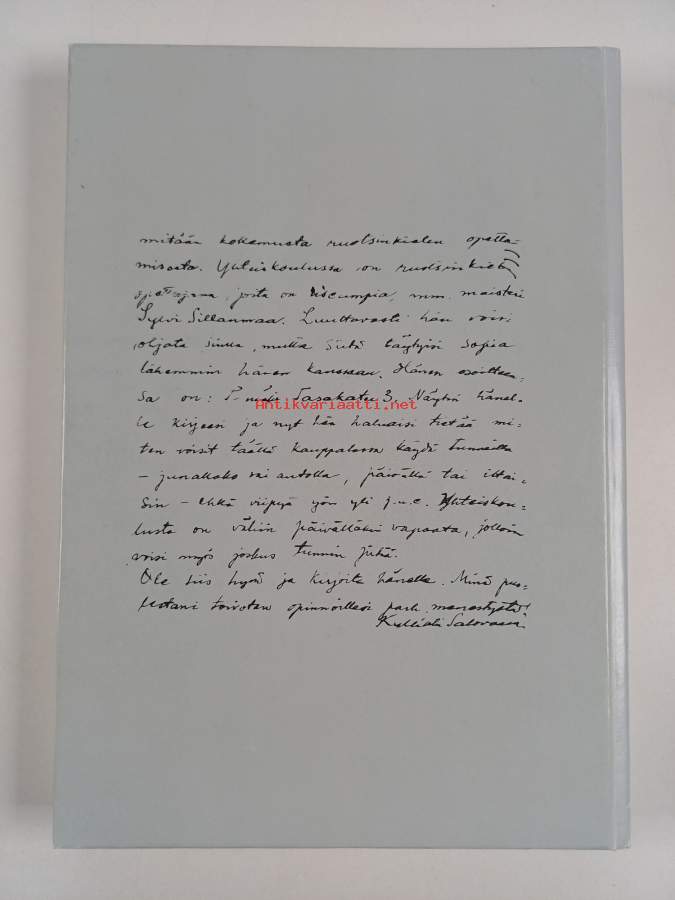 mitään kokemusta ruotsinkielen opetta-
misesta. Yhteiskoulussa on ruotsinkielen
opettajana joita on useampia, mm. maisteri
Sylvi Sillanmaa. Luultavasti hän voisi
ohjata sinua, mutta siitä täytyisi sopia
lähemmin hänen kanssaan. Hänen osoitteen-
sa on: Tasakatu 3. Näytin hänel-
Antikvariaatti.net
le kirjeesi ja nyt hän haluaisi tietää mi-
ten voisit täällä kauppalassa käydä tunneilla
– junallako vai autolla, päivällä tai iltai-
sin – ehkä viipyä yön yli j.n.e. Yhteiskou-
lusta on väliin päivälläkin vapaata, jolloin
voisi myös joskus tunnin pitää.
Ole siis hyvä ja kirjoita hänelle. Minä puo-
lestani toivotan opinnoillesi parh. menestystä!